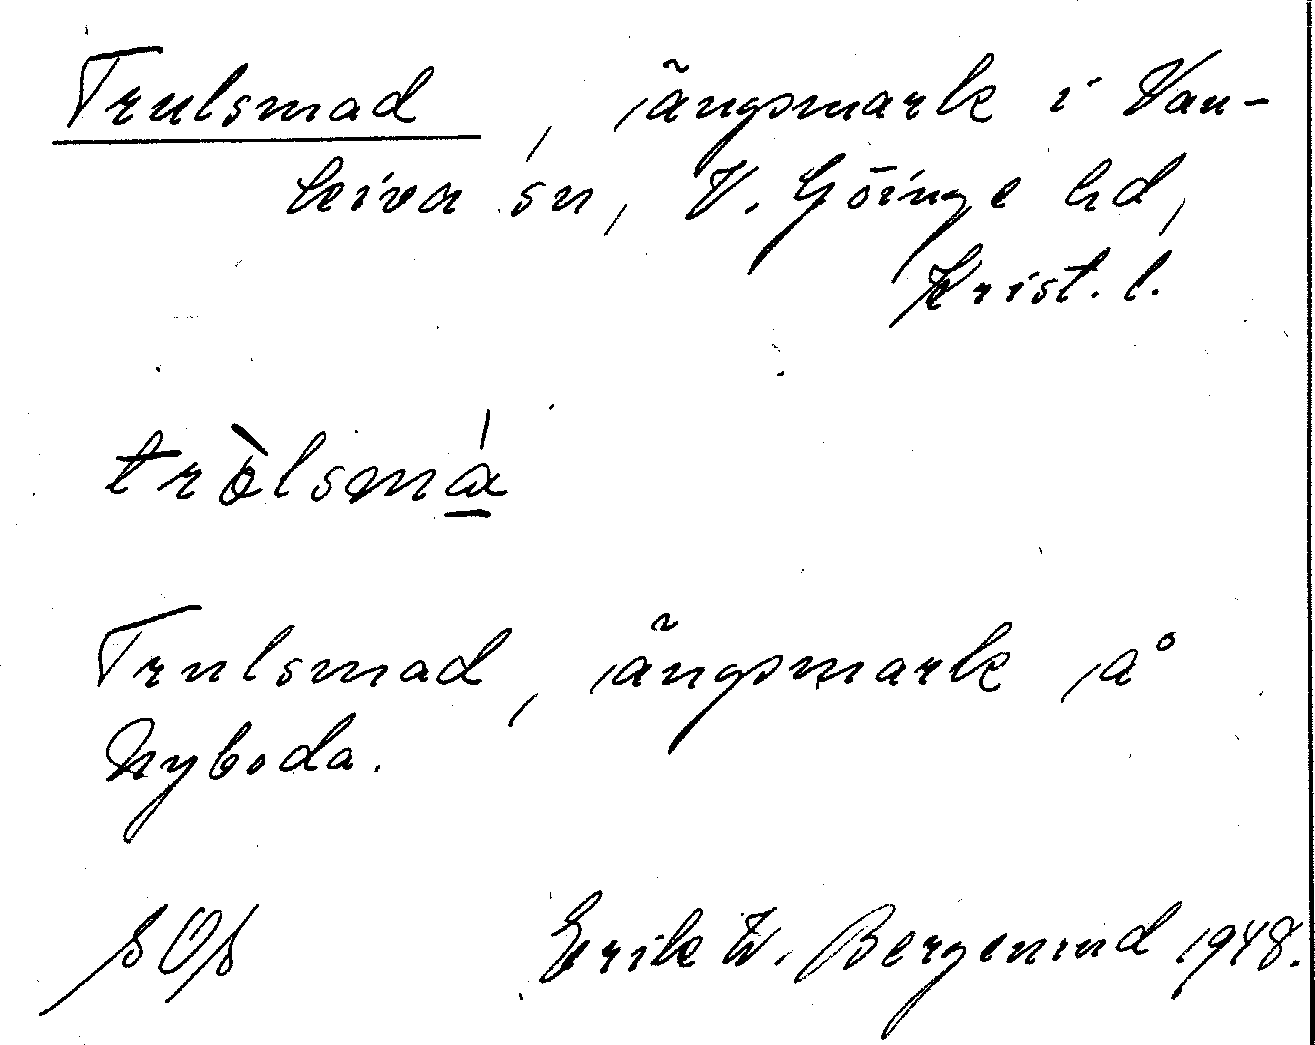 Trulsmad, ängsmark i Van-
keiva sn, V. Göinge hd,
Krist. l.
tròlsmá
Trulsmad, ängsmark å
Nyboda.
Erik W. Bergenrud 1948.